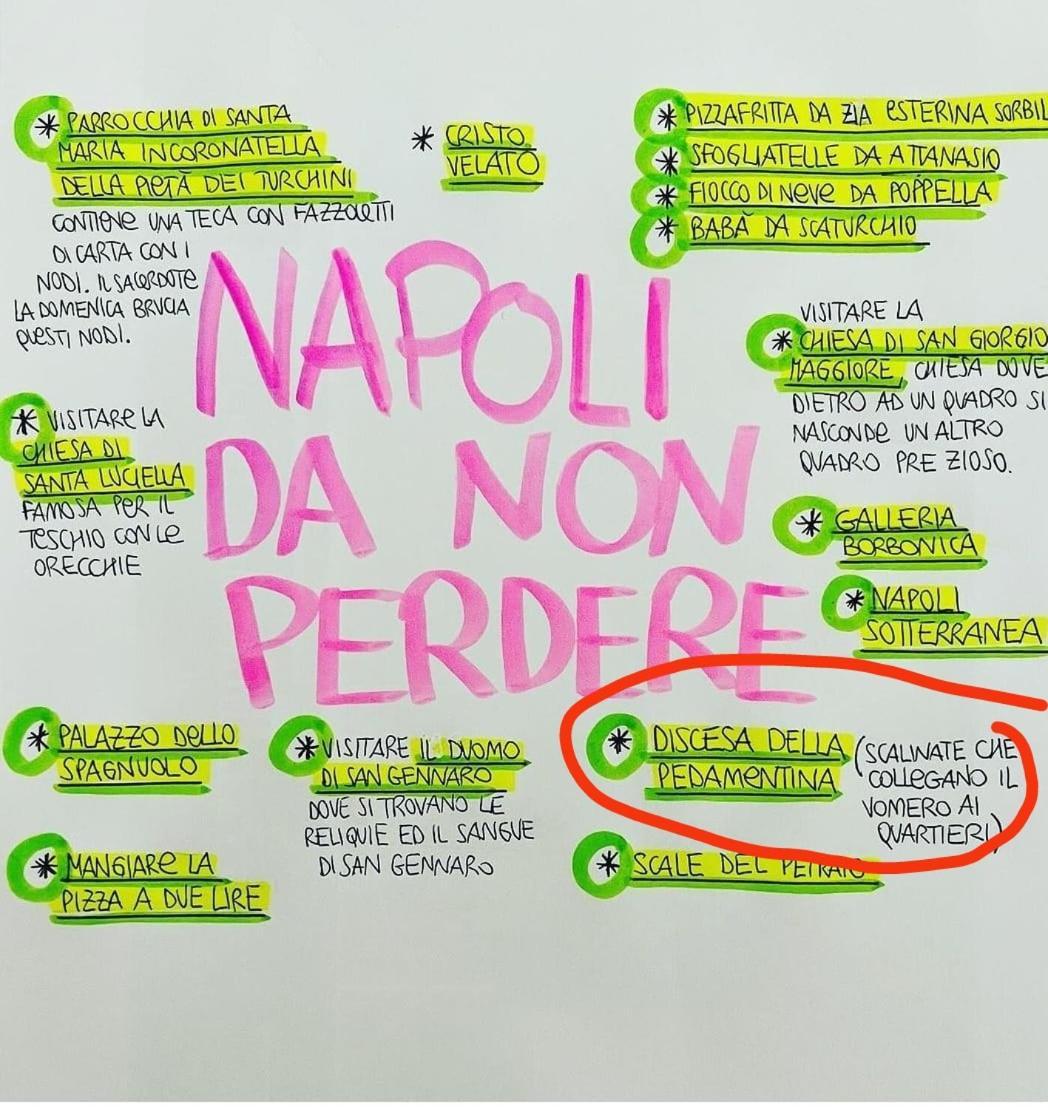 * PARROCCHIA DI SANTA
MARIA INCORONATELLA
DELLA PIETÀ DEI TURCHINI
CONTIENE UNA TECA CON FAZZOLETTI
DI CARTA CON I
NODI. IL SACERDOTE
LA DOMENICA BRUCIA
QUESTI NODI.
* CRISTO
VELATO
* PIZZAFRITTA DA ZIA ESTERINA SORBIL
* SFOGLIATELLE DA ATTANASIO
* FIOCCO DI NEVE DA POPPELLA
* BABÀ DA SCATURCHIO
NAPOLI
DA NON
PERDERE
VISITARE LA
* CHIESA DI SAN GIORGIO
MAGGIORE, CHIESA DOVE
DIETRO AD UN QUADRO SI
NASCONDE UN ALTRO
QUADRO PREZIOSO.
* VISITARE LA
CHIESA DI
SANTA LUCIELLA
FAMOSA PER IL
TESCHIO CON LE
ORECCHIE
* GALLERIA
BORBONICA
* NAPOLI
SOTTERRANEA
* PALAZZO DELLO
SPAGNUOLO
* VISITARE IL DUOMO
DI SAN GENNARO
DOVE SI TROVANO LE
RELIQUIE ED IL SANGUE
DI SAN GENNARO
* DISCESA DELLA
PEDAMENTINA
(SCALINATE CHE
COLLEGANO IL
VOMERO AI
QUARTIERI)
* MANGIARE LA
PIZZA A DUE LIRE
* SCALE DEL PETRAIO